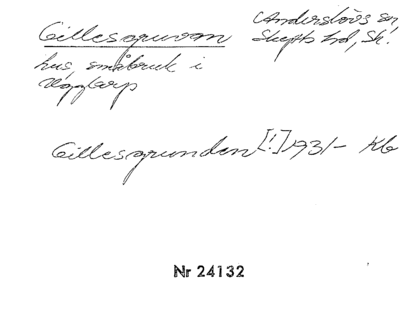 Gillesgruvan
Anderslövs sn,
Skytts hd, Sk.
hus, småbruk i
Äggarp
Gillesgrunden [!] 1931- Kb
Nr 24132